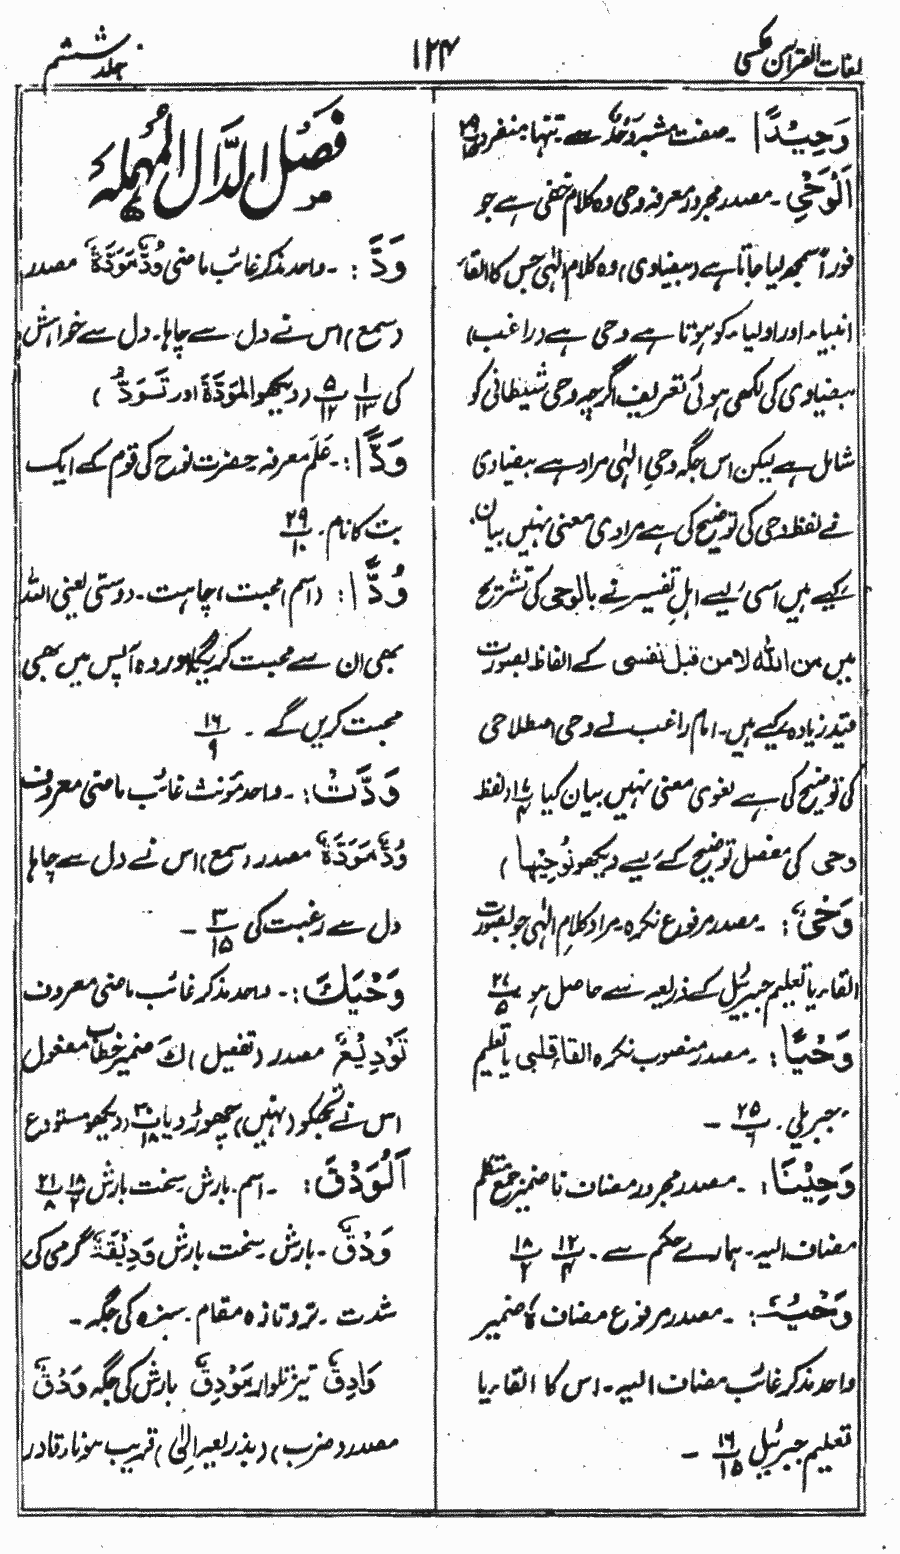 لغات القرآن عکسی
۱۲۴
جلد ششم
وَحِیْدًا ۔ صفت مشبہ وَحْدٌ سے۔ تنہا۔ منفرد ۲۹/۱۵
اَلْوَحْیِ ۔ مصدر مجرور معرفہ وحی وہ کلام خفی ہے جو
فوراً سمجھ لیا جاتا ہے (بیضاوی) وہ کلام الٰہی جس کا القاء
انبیاء اور اولیاء کو ہوتا ہے وحی ہے (راغب)
بیضاوی کی لکھی ہوئی تعریف اگرچہ وحی شیطانی کو
شامل ہے لیکن اس جگہ وحیِ الٰہی مراد ہے بیضاوی
نے لفظ وحی کی توضیح کی ہے مرادی معنی نہیں بیان
کیے ہیں اسی لیے اہلِ تفسیر نے بالوحی کی تشریح
میں من اللہ لا من قبل نفسی کے الفاظ بصورت
قید زیادہ کیے ہیں۔ امام راغب نے وحی اصطلاحی
کی توضیح کی ہے لغوی معنی نہیں بیان کیا ۱۷/۴ (لفظ
وحی کی مفصل توضیح کے لیے دیکھو نُوْحِیْهَا)
وَحْیٌ : ۔ مصدر مرفوع نکرہ۔ مراد کلامِ الٰہی جو بصورت
القاء یا تعلیم جبرئیل کے ذریعہ سے حاصل ہو ۲۷/۵
وَحْیًا : ۔ مصدر منصوب نکرہ القاء قلبی یا تعلیم
جبریلی ۔ ۲۵/۶ ۔
وَحِیْنَا : ۔ مصدر مجرور مضاف نا ضمیر جمع متکلم
مضاف الیہ۔ ہمارے حکم سے ۔ ۱۲/۴ ۱۸/۲
وَحْیُهٗ : ۔ مصدر مرفوع مضاف ہٗ ضمیر
واحد مذکر غائب مضاف الیہ۔ اس کا القاء یا
تعلیم جبرئیل ۱۶/۱۵ ۔
فَصْلُ الدَّالِ الْمُهْمَلَةِ
وَدَّ : ۔ واحد مذکر غائب ماضی وُدٌّ مَوَدَّةٌ مصدر
(سمع) اس نے دل سے چاہا۔ دل سے خواہش
کی ۱/۱۳ ۵/۱۲ (دیکھو المَوَدَّةَ اور تَوَدُّ)
وَدًّا : ۔ عَلَم معرفہ حضرت نوح کی قوم کے ایک
بت کا نام ۔ ۲۹/۱۰
وُدًّا : (اسم) محبت، چاہت ۔ دوستی یعنی اللہ
بھی ان سے محبت کریگا اور وہ آپس میں بھی
محبت کریں گے ۔ ۱۶/۹
وَدَّتْ : ۔ واحد مؤنث غائب ماضی معروف
وُدٌّ مَوَدَّةٌ مصدر (سمع) اس نے دل سے چاہا
دل سے رغبت کی ۳/۱۵ ۔
وَدَّعَكَ : ۔ واحد مذکر غائب ماضی معروف
تَوْدِیْعٌ مصدر (تفعیل) كَ ضمیر خطاب مفعول
اس نے تجھکو (نہیں) چھوڑ دیا ۳۰/۱۸ (دیکھو مستودع
اَلْوَدْقَ : ۔ اسم۔ بارش سخت بارش ۱۸/۱۲ ۲۱/۸
وَدْقٌ ۔ بارش۔ سخت بارش وَدِیْقَةٌ گرمی کی
شدت ۔ تر و تازہ مقام ۔ سبزہ کی جگہ ۔
وَادِقٌ تیز تلوار مَوْدِقٌ بارش کی جگہ وَدْقٌ
مصدر (ضرب) (بذریعہ اِلٰی) قریب ہونا، قادر